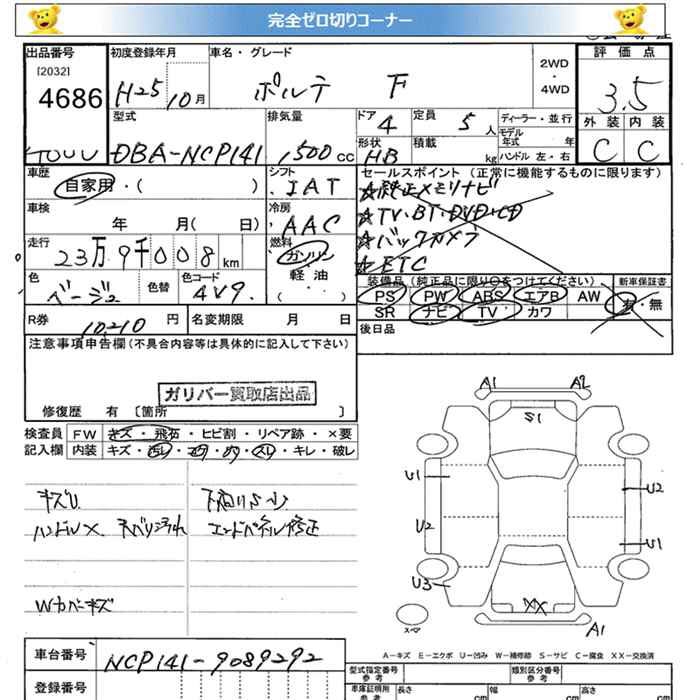 完全ゼロ切りコーナー
出品番号 初度登録年月 車名・グレード 2WD・4WD 評価点
[2032]
4686 H25 10月 ポルテ F 3.5
型式 排気量 ドア 4 定員 5人 ディーラー・並行 外装 内装
DBA-NCP141 1,500cc 形状 HB 積載 kg モデル年式 年 C C
ハンドル 左・右
車歴 シフト セールスポイント (正常に機能するものに限ります)
自家用・( ) IAT ☆純正メモリナビ
車検 冷房 ☆TV・BT・DVD・CD
年 月( 日) AAC ☆バックカメラ
走行 燃料 ☆ETC
23万9千008km ガソリン
軽油
( ・ )
装備品 (純正品に限り○をつけてください) 新車保証書
色 ベージュ 色替 色コード 4V9 PS PW ABS エアB AW 有・無
SR ナビ TV カワ
R券 10210円 名変期限 月 日 後日品
注意事項申告欄 (不具合内容等は具体的に記入して下さい)
ガリバー買取店出品
修復歴 有 〔箇所 〕
検査員 FW キズ・飛石・ヒビ割・リペア跡・×要
記入欄 内装 キズ・汚レ・コゲ・穴・スレ・キレ・破レ
キズU 下廻りS少
ハンドルスレ 天ベリ汚れ エンドパネル修正
Wカバーキズ
A1 A2
S1
U1 U2
U2
U1
U3
XX
スペア A1
A-キズ E-エクボ U-凹み W-補修跡 S-サビ C-腐食 XX-交換済
車台番号 NCP141-9089292
型式指定番号 参考 類別区分番号 参考
登録番号 車庫証明用 参考 長さ cm 幅 cm 高さ cm